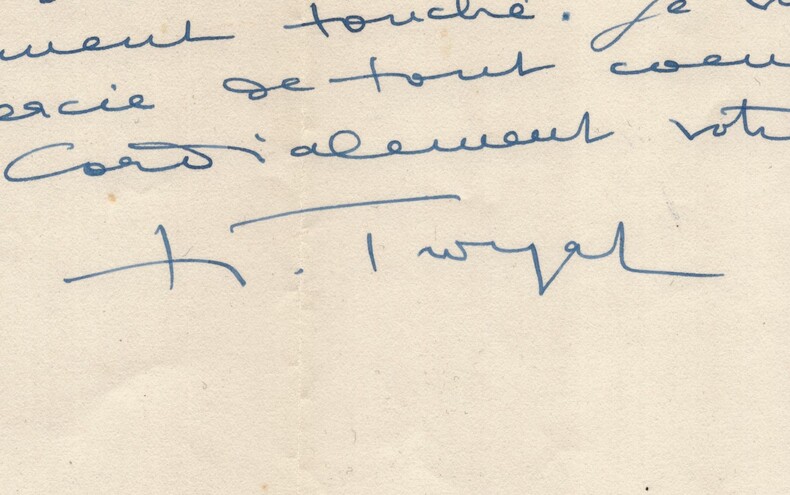 ment touché. Je v
ercie de tout coeu
Cordialement votr